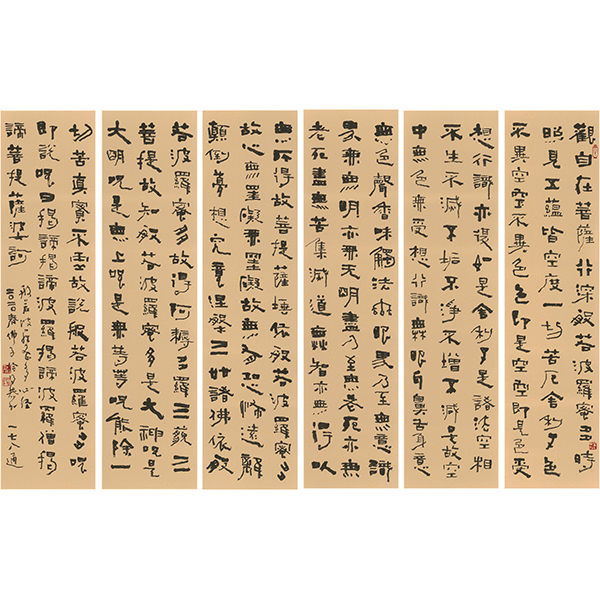 觀自在菩薩行深般若波羅蜜多時
照見五蘊皆空度一切苦厄舍利子色
不異空空不異色色即是空空即是色受
想行識亦復如是舍利子是諸法空相
不生不滅不垢不淨不增不減是故空
中無色無受想行識無眼耳鼻舌身意
無色聲香味觸法無眼界乃至無意識
界無無明亦無无明盡乃至無老死亦無
老死盡無苦集滅道無智亦無得以
無所得故菩提薩埵依般若波羅蜜多
故心無罣礙無罣礙故無有恐怖遠離
顛倒夢想究竟涅槃三世諸佛依般
若波羅蜜多故得阿耨多羅三藐三
菩提故知般若波羅蜜多是大神呪是
大明呪是無上呪是無等等呪能除一
切苦真實不虛故說般若波羅蜜多呪
即說呪曰揭諦揭諦波羅揭諦波羅僧揭
諦菩提薩婆訶